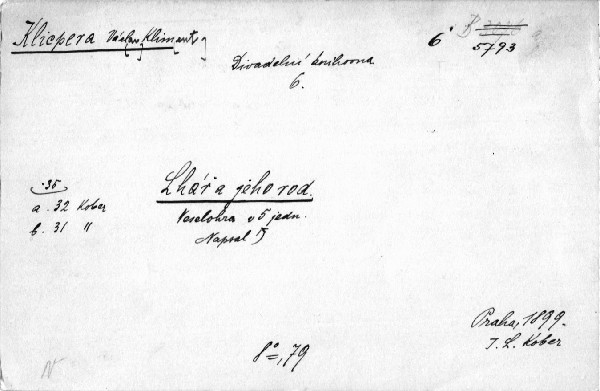 Klicpera Václav Kliment
6
5793
Divadelní knihovna
6.
Lhář a jeho rod.
Veselohra v 5 jedn.
Napsal
35
a. 32 Kober
b. 31 "
Praha, 1899.
I. L. Kober
8°, 79
N